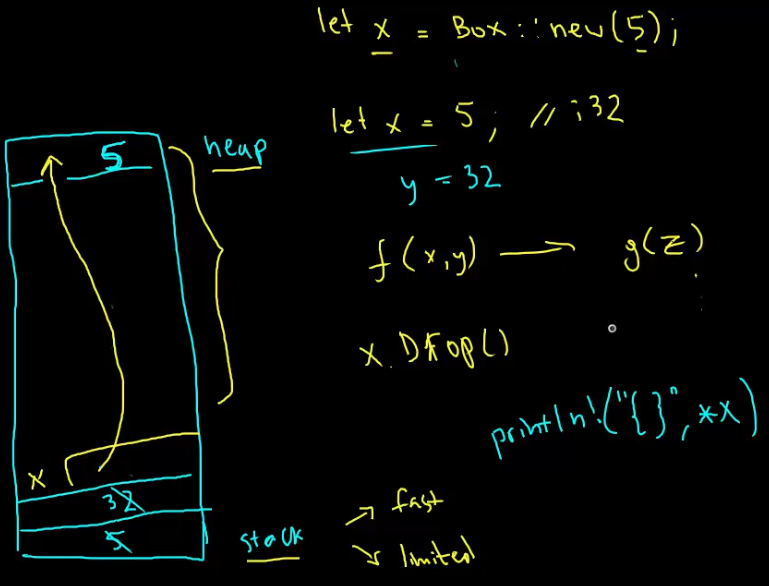 let x = Box::new(5);
let x = 5; // i32
y = 32
f(x,y) → g(z)
x.Drop()
println!("{}", *x)
5
heap
x
32
5
stack
fast
limited